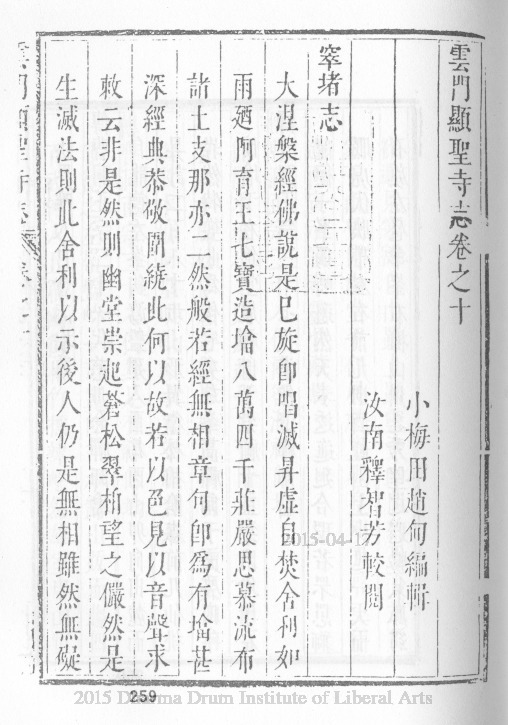 雲門顯聖寺志卷之十
小梅田趙甸編輯
汝南釋智芳較閱
窣堵志
大涅槃經佛說是巳旋卽唱滅昇虛自焚舍利如
雨廼阿育王七寶造塔八萬四千莊嚴思慕流布
諸土支那亦二然般若經無相章句卽爲有塔甚
深經典恭敬圍繞此何以故若以色見以音聲求
敎云非是然則幽堂崇起蒼松翠柏望之儼然是
生滅法則此舍利以示後人仍是無相雖然無礙
雲門顯聖寺志 卷之十
259
2015-04-17
2015 Dharma Drum Institute of Liberal Arts